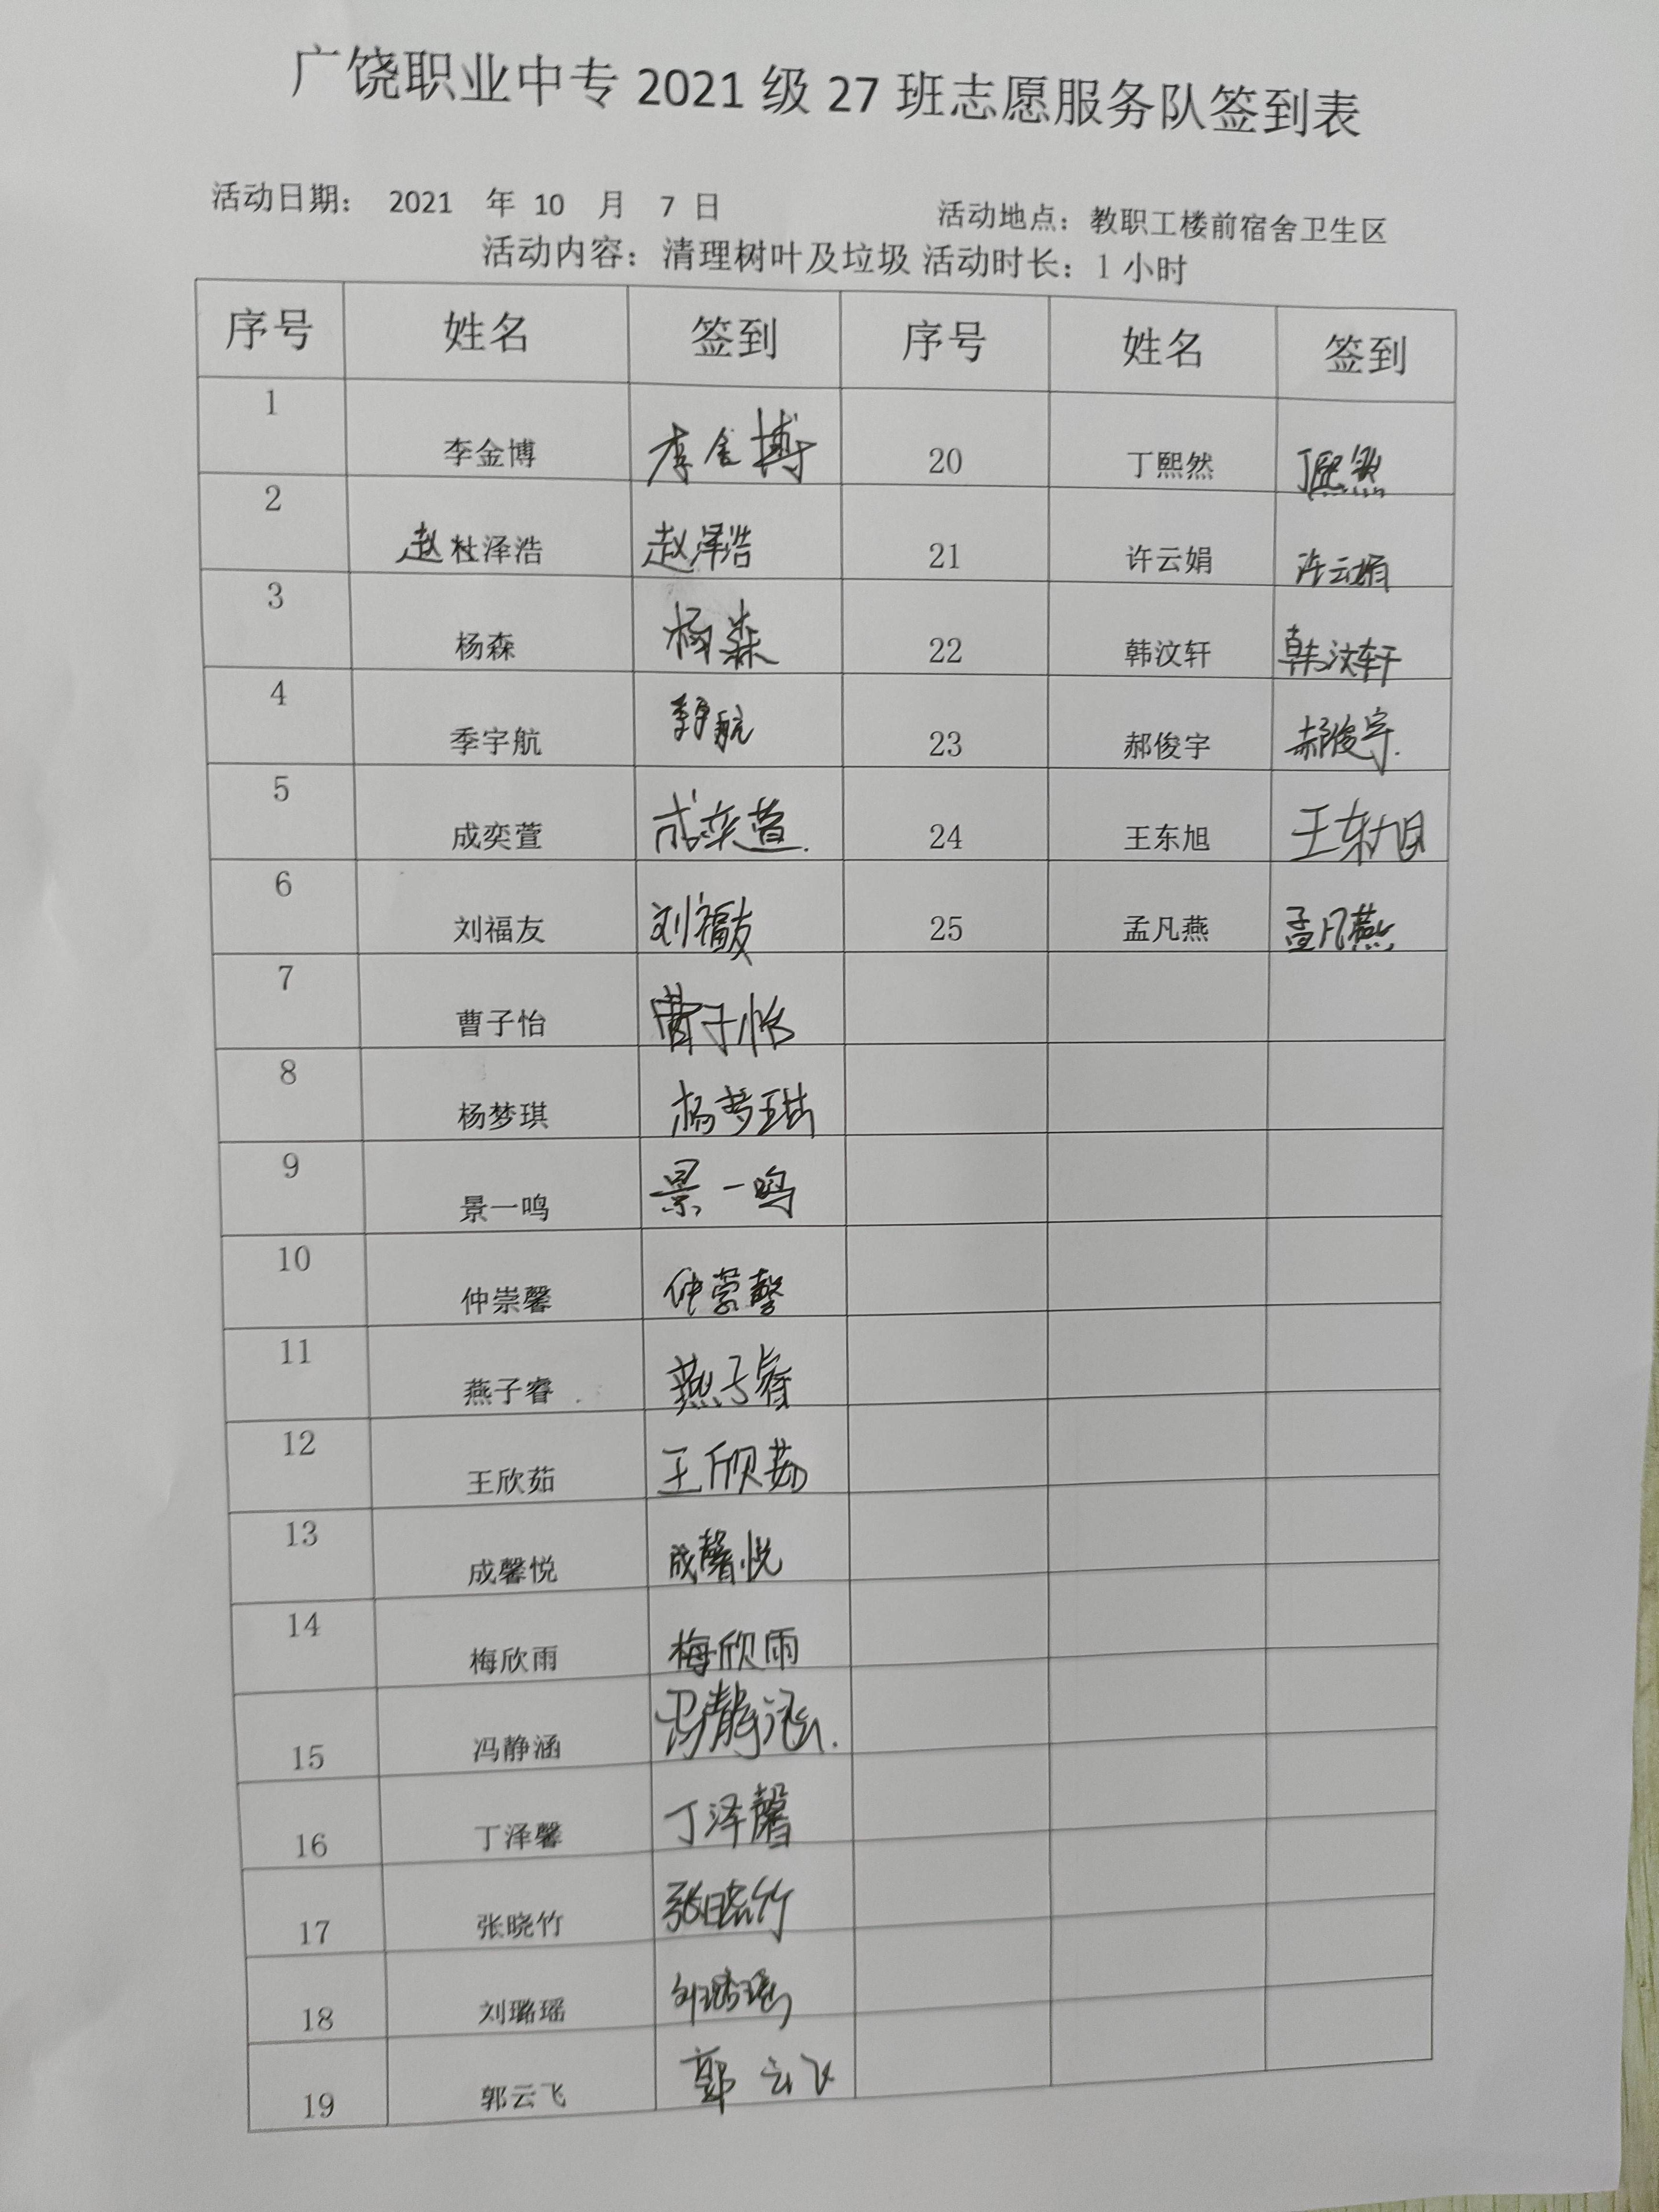 广饶职业中专 2021 级 27 班志愿服务队签到表
活动日期： 2021 年 10 月 7 日 活动地点：教职工楼前宿舍卫生区
活动内容：清理树叶及垃圾 活动时长：1 小时
序号 姓名 签到 序号 姓名 签到
1 李金博 李金博 20 丁熙然 丁熙然
2 赵杜泽浩 赵泽浩 21 许云娟 许云娟
3 杨森 杨森 22 韩汶轩 韩汶轩
4 季宇航 季宇航 23 郝俊宇 郝俊宇.
5 成奕萱 成奕萱. 24 王东旭 王东旭
6 刘福友 刘福友 25 孟凡燕 孟凡燕
7 曹子怡 曹子怡
8 杨梦琪 杨梦琪
9 景一鸣 景一鸣
10 仲崇馨 仲崇馨
11 燕子睿 燕子睿
12 王欣茹 王欣茹
13 成馨悦 成馨悦
14 梅欣雨 梅欣雨
15 冯静涵 冯静涵.
16 丁泽馨 丁泽馨
17 张晓竹 张晓竹
18 刘璐瑶 刘璐瑶
19 郭云飞 郭云飞